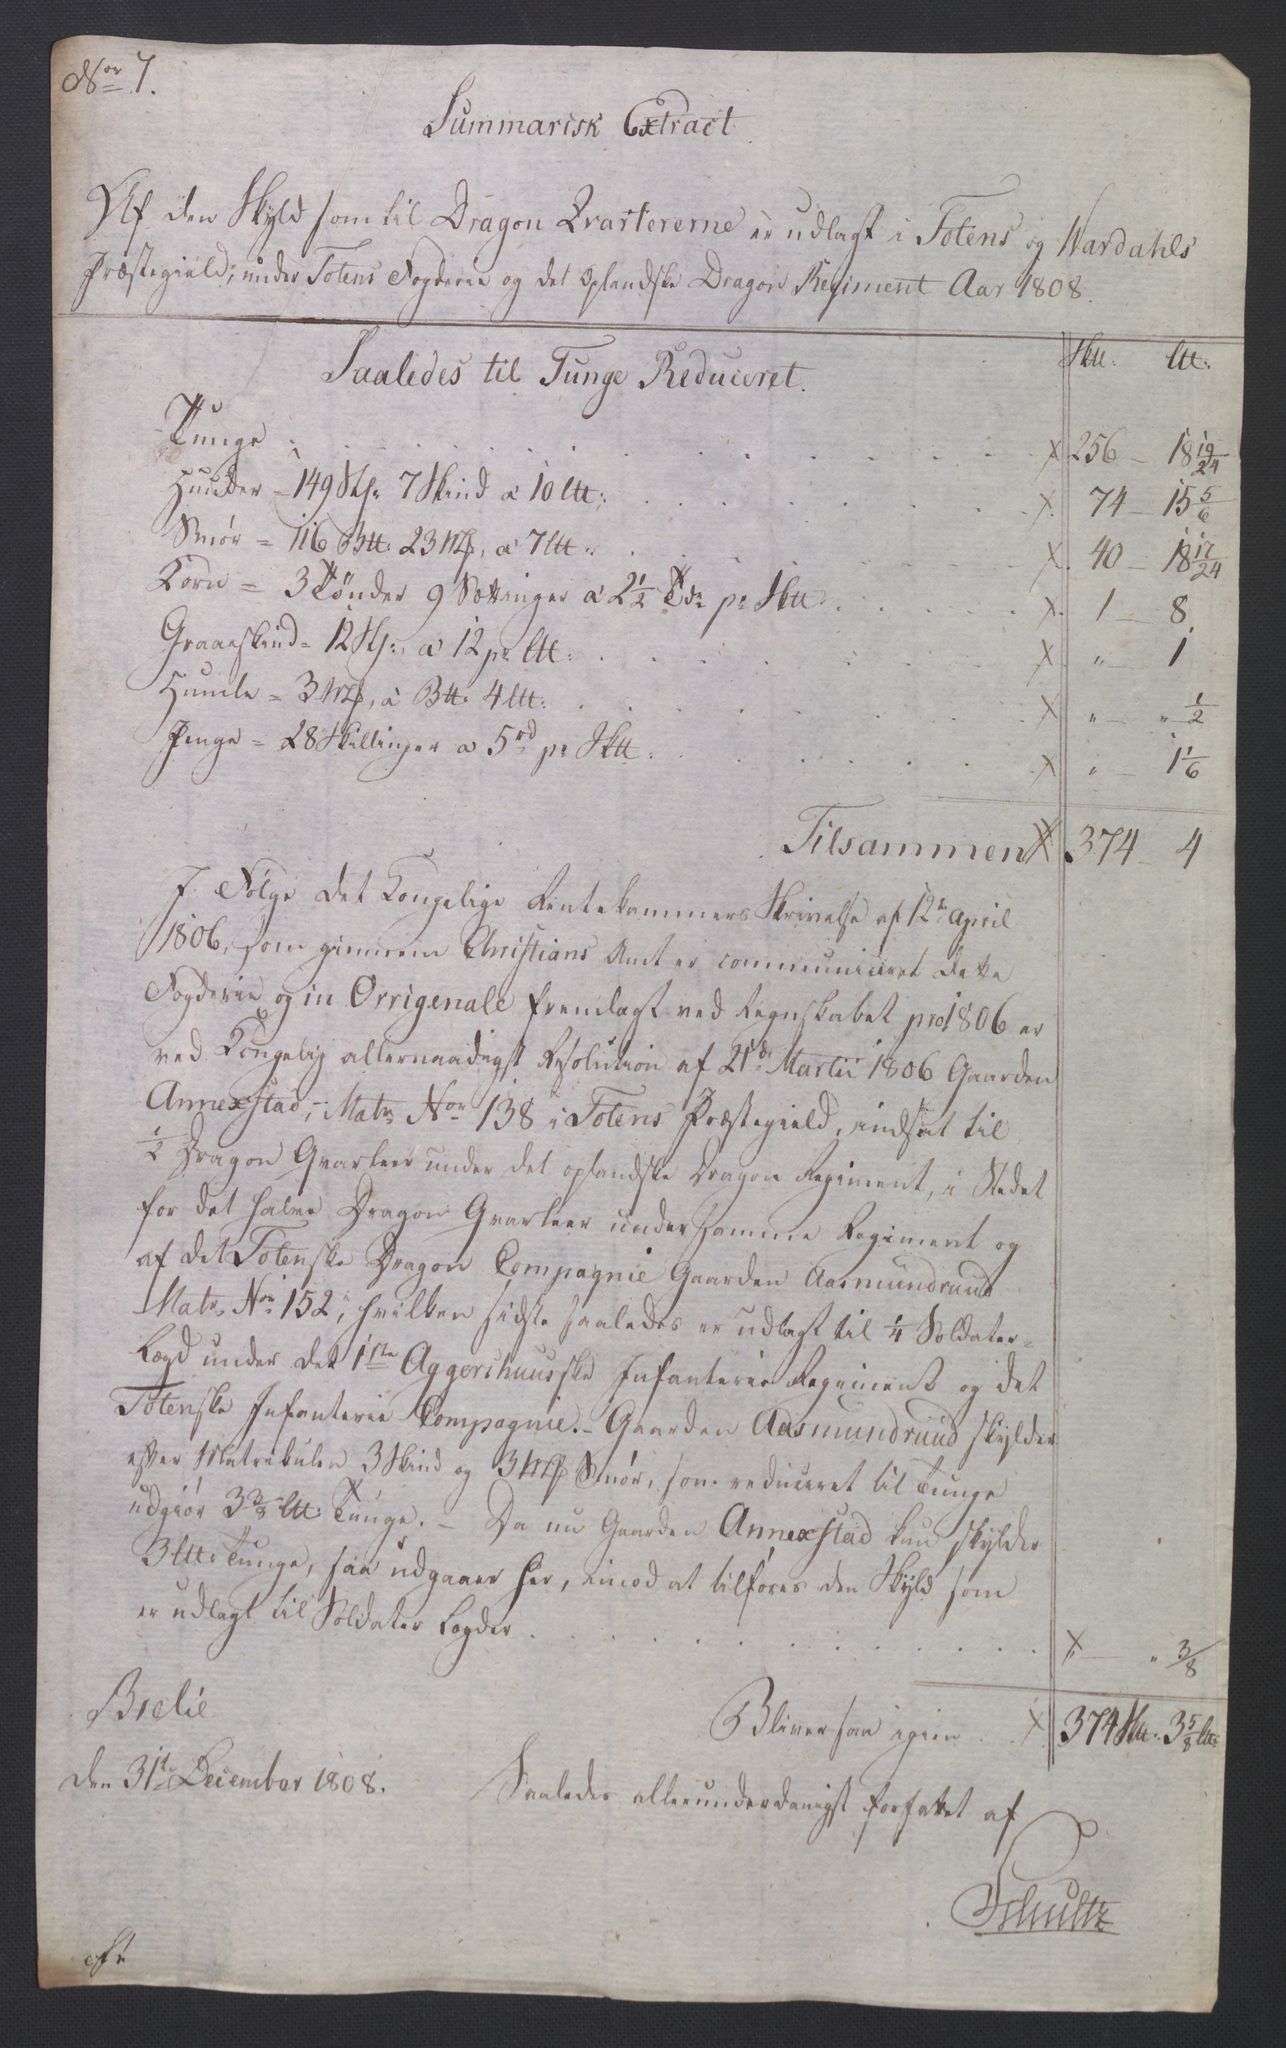 Nor 7.
Summarisk Extract
Af den Skyld som til Dragon Qvartererne er udlagt i Totens og Wardahls
Præstegield, under Totens Fogderie og det Oplandske Dragon Regiment Aar 1808.
Saaledes til Tunge Reduceret. Skt: lt:
Tunge . . . 256 – 18 19/24
Huuder = 149 Skj: 7 Skind a 10 lt: . . . 74 – 15 5/6
Smør = 116 Bt: 23 Mk, a 7 lt: . . . 40 – 18 17/24
Korn = 3 Tønder 9 Sættinger a 2 1/2 Tdr pr Skt: . . . 1 – 8
Graaeskind = 12 Skj: a 12 pr lt: . . . " – 1
Humle = 3 Mk, a Bt: 4 lt: . . . " – " 1/2
Penge = 28 Skillinger a 5 rd pr Skt: . . . " – 1 1/6
Tilsammen 374 – 4
I Følge det Kongelige Rentekammers Skrivelse af 12te April
1806, som giennem Christians Amt er communiceret dette
Fogderie og in Orrigenale fremlagt ved Regnskabet pro 1806 er
ved Kongelig allernaadigst Resolution af 21de Martii 1806 Gaarden
Annexstad, Matr. Nor 138 i Totens Præstegield, indsat til
1/2 Dragon Qvarteer under det oplandske Dragon Regiment, i Stedet
for det halve Dragon Qvarteer under samme Regiment og
af det Totenske Dragon Compagnie Gaarden Aasmundruud
Matr. Nor 152, hvilken sidste saaledes er udlagt til 1/4 Soldater-
Lægd under det 1ste Aggershuusske Infanterie Regiment og det
Totenske Infanterie Compagnie. – Gaarden Aasmundruud skylder
efter Matrikulen 3 Skind og 3 Mk Smør, som reduceret til Tunge
udgiør 3 3/8 lt: Tunge. – Da nu Gaarden Annexstad kun skylder
3 lt: Tunge, saa udgaaer her, imod at tilføres den Skyld som
er udlagt til Soldater Lægder . . . " – " 3/8
Bliver saa igien . . 374 Skt: 3 5/8 lt:
Bielie
den 31te December 1808.
Saaledes allerunderdanigst forfattet af
Schultz